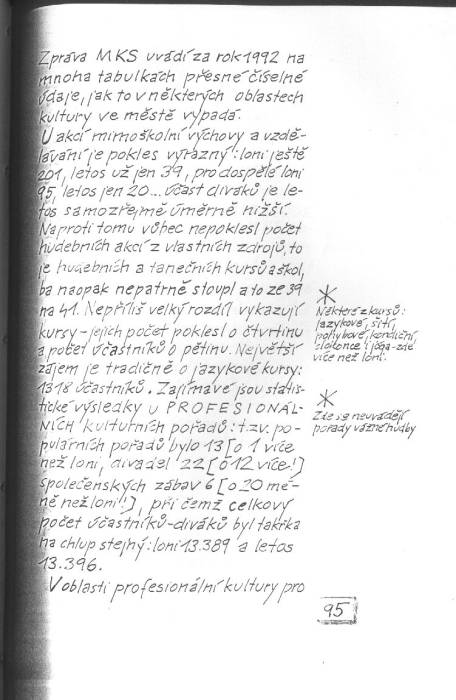 Zpráva MKS uvádí za rok 1992 na
mnoha tabulkách přesné číselné
údaje, jak to v některých oblastech
kultury ve městě vypadá.
U akcí mimoškolní výchovy a vzdě-
lávání je pokles výrazný: loni ještě
201, letos už jen 39, pro dospělé loni
95, letos jen 20... Účast diváků je le-
tos samozřejmě úměrně nižší.
Naproti tomu vůbec nepoklesl počet
hudebních akcí z vlastních zdrojů, to
je hudebních a tanečních kursů a škol,
ba naopak nepatrně stoupl a to ze 39
na 41. Nepříliš velký rozdíl vykazují
kursy - jejich počet poklesl o čtvrtinu
a počet účastníků o pětinu. Největší
zájem je tradičně o jazykové kursy:
1318 účastníků. Zajímavé jsou statis-
tické výsledky u PROFESIONÁL-
NÍCH kulturních pořadů: t.zv. po-
pulárních pořadů bylo 13 [o 1 více
než loni, divadel 22 [o 12 více!]
společenských zábav 6 [o 20 mé-
ně než loni!!], při čemž celkový
počet účastníků-diváků byl takřka
na chlup stejný: loni 13.389 a letos
13.396.
V oblasti profesionální kultury pro
*
Některé z kursů:
jazykové, šití,
pohybové, kondiční,
i jóga - zde
více než loni.
*
Zde se neuvádějí
pořady vážné hudby
95